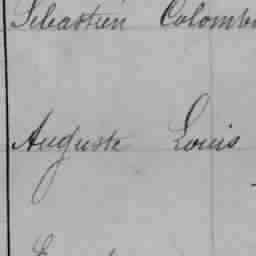 Sébastien Colomb
Auguste Louis